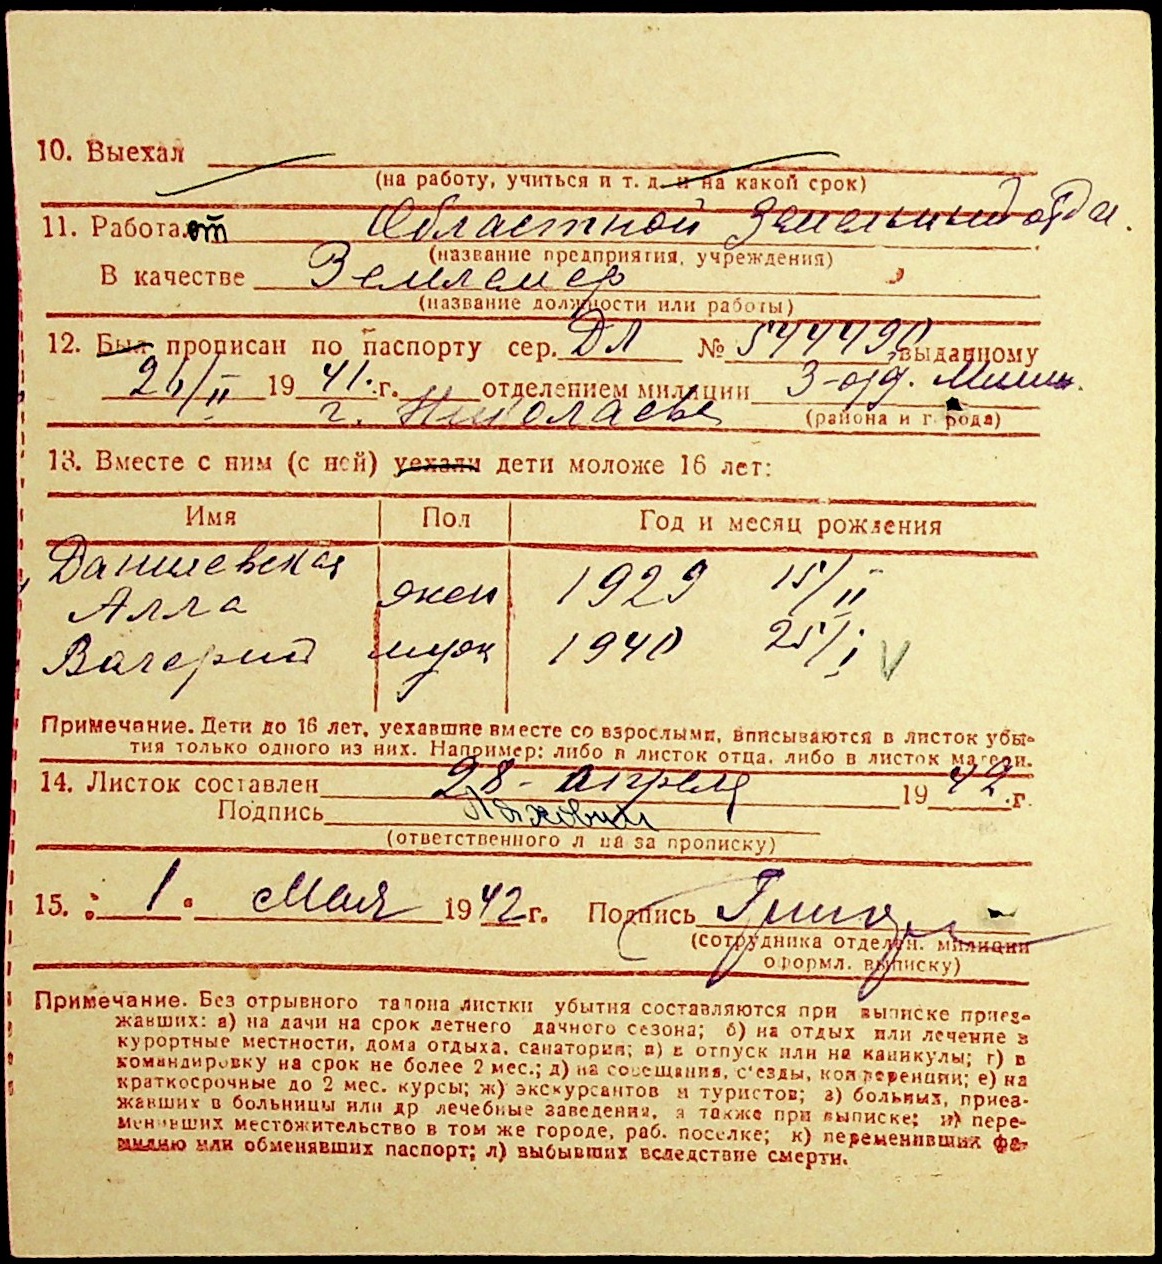 10. Выехал
(на работу, учиться и т. д. и на какой срок)
11. Работает Областной Земельный отдел.
(название предприятия, учреждения)
В качестве Землемер
(название должности или работы)
12. Был прописан по паспорту сер. ДЛ № 544490 выданному
26/II 1941.г. отделением милиции 3-отд. Милиц.
г. Николаева (района и города)
13. Вместе с ним (с ней) уехали дети моложе 16 лет:
Имя Пол Год и месяц рождения
Данилевская
Алла жен 1929 15/II
Валерий муж 1940 25/I V
Примечание. Дети до 16 лет, уехавшие вместе со взрослыми, вписываются в листок убы-
тия только одного из них. Например: либо в листок отца, либо в листок матери.
14. Листок составлен 28 - апреля 1942.г.
Подпись
(ответственного лица за прописку)
15. 1. Мая 1942 г. Подпись
(сотрудника отделен. милиции
оформл. выписку)
Примечание. Без отрывного талона листки убытия составляются при выписке приез-
жавших: а) на дачи на срок летнего дачного сезона; б) на отдых или лечение в
курортные местности, дома отдыха, санатории; в) в отпуск или на каникулы; г) в
командировку на срок не более 2 мес.; д) на совещания, с'езды, конференции; е) на
краткосрочные до 2 мес. курсы; ж) экскурсантов и туристов; з) больных, приез-
жавших в больницы или др лечебные заведения, а также при выписке; и) пере-
менивших местожительство в том же городе, раб. поселке; к) переменивших фа-
милию или обменявших паспорт; л) выбывших вследствие смерти.